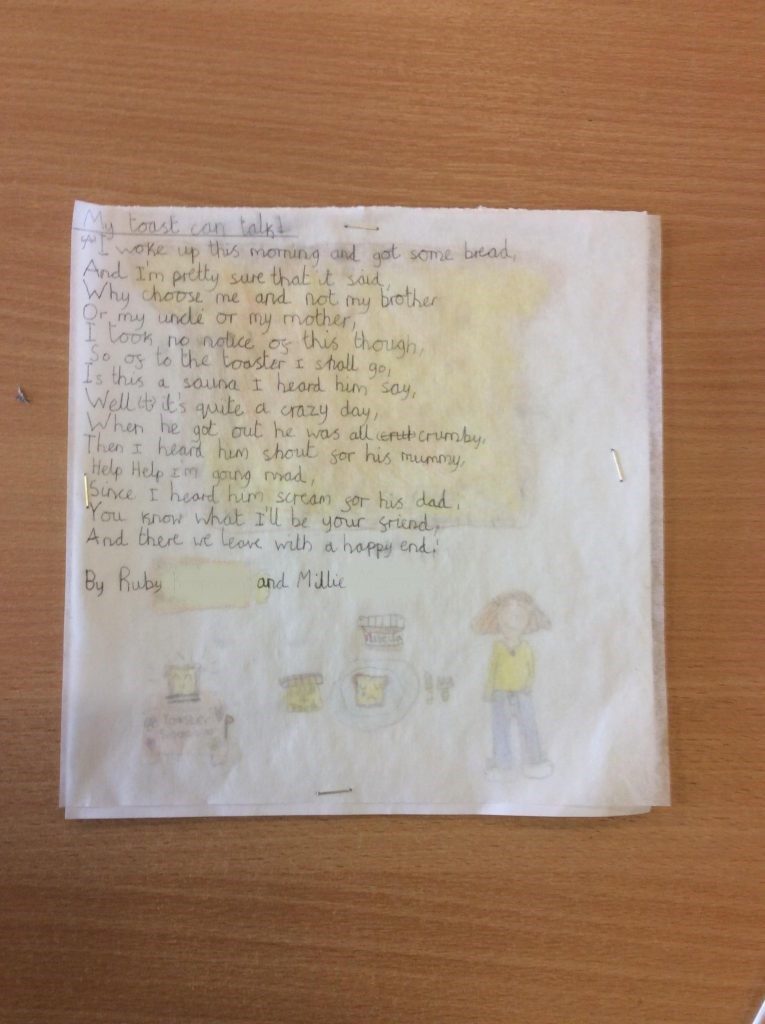 My toast can talk!
I woke up this morning and got some bread,
And I'm pretty sure that it said,
Why choose me and not my brother
Or my uncle or my mother,
I took no notice of this though,
So of to the toaster I shall go,
Is this a sauna I heard him say,
Well it's quite a crazy day,
When he got out he was all crumby,
Then I heard him shout for his mummy,
Help Help I'm going mad,
Since I heard him scream for his dad,
You know what I'll be your friend,
And there we leave with a happy end!
By Ruby and Millie
Toaster